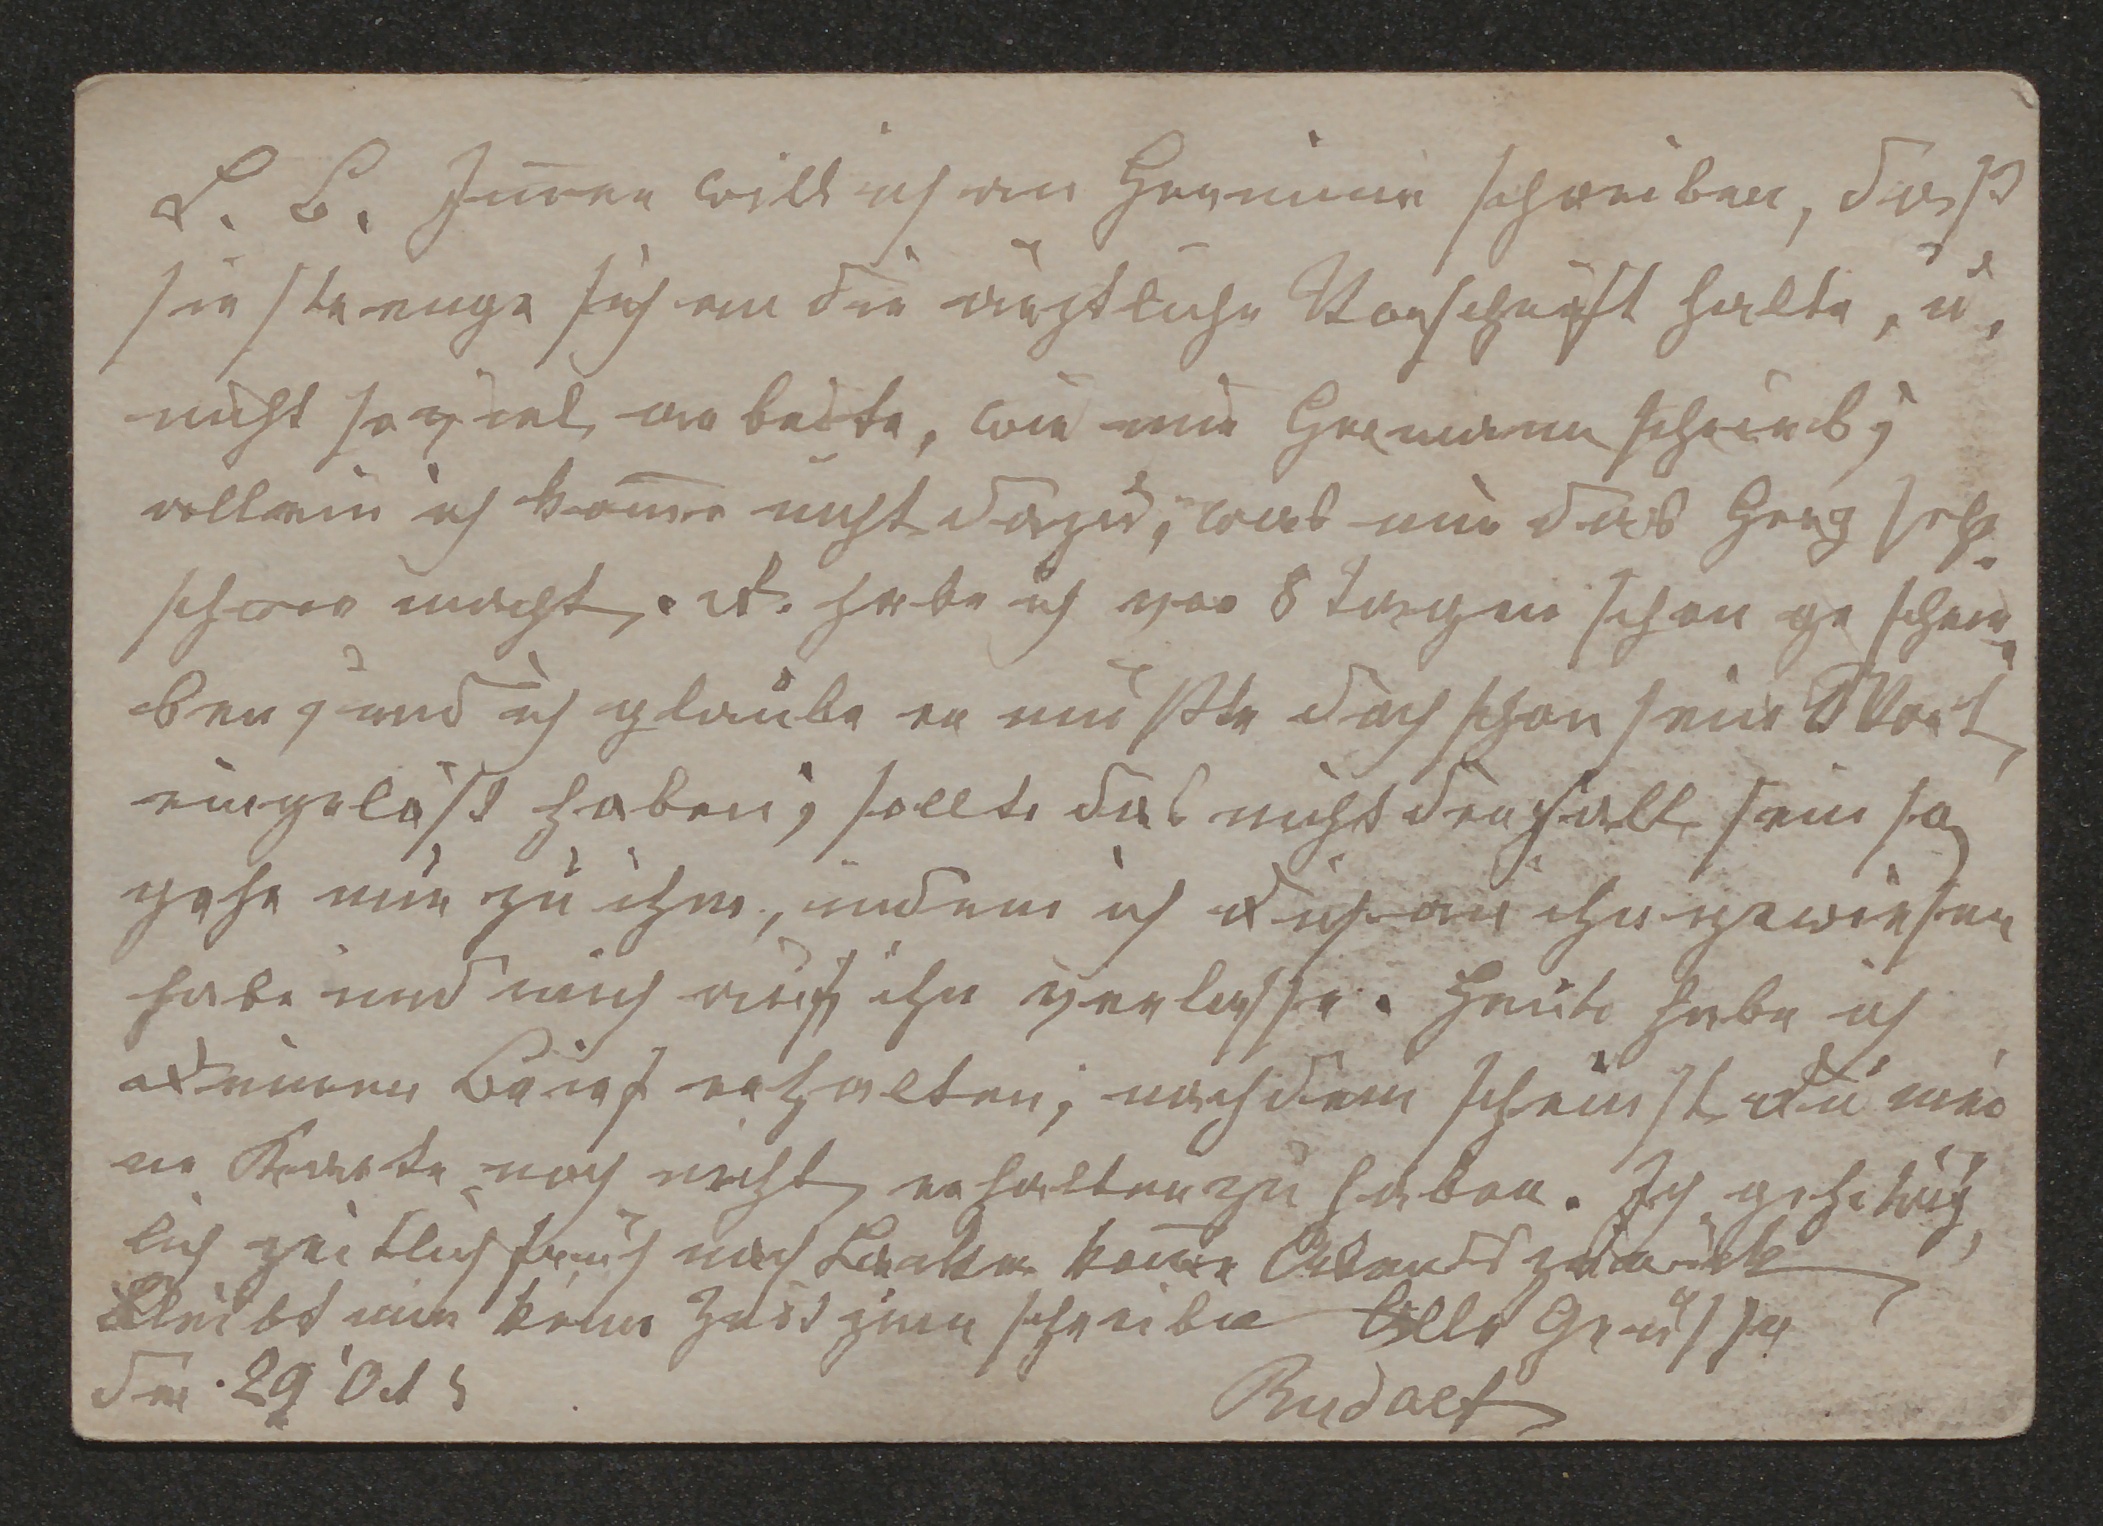 L. B. Immer will ich an Hermine schreiben, daß
sie strenge sich an die ärztliche Vorschrift halte, u.
nicht so viel arbeite, wie mir Hermann schrieb;
allein ich komme nicht dazu, was mir das Herz sehr
schwer macht. A. habe ich vor 8 Tagen schon geschrie¬
ben, und ich glaube er müßte doch schon sein Wort
eingelöst haben; sollte das nicht der Fall sein so
gehe nur zu ihm, indem ich Dich an ihn gewiesen
habe und mich auf ihn verlasse. Heute habe ich
Deinen Brief erhalten; nachdem scheinst Du mei
ne Karte noch nicht erhalten zu haben. Ich gehe täg¬
lich zeitlich früh nach komme Abends zurück
bleibt mir keine Zeit zum schreiben Alle Grüsse
den 29 Oct
Rudolf